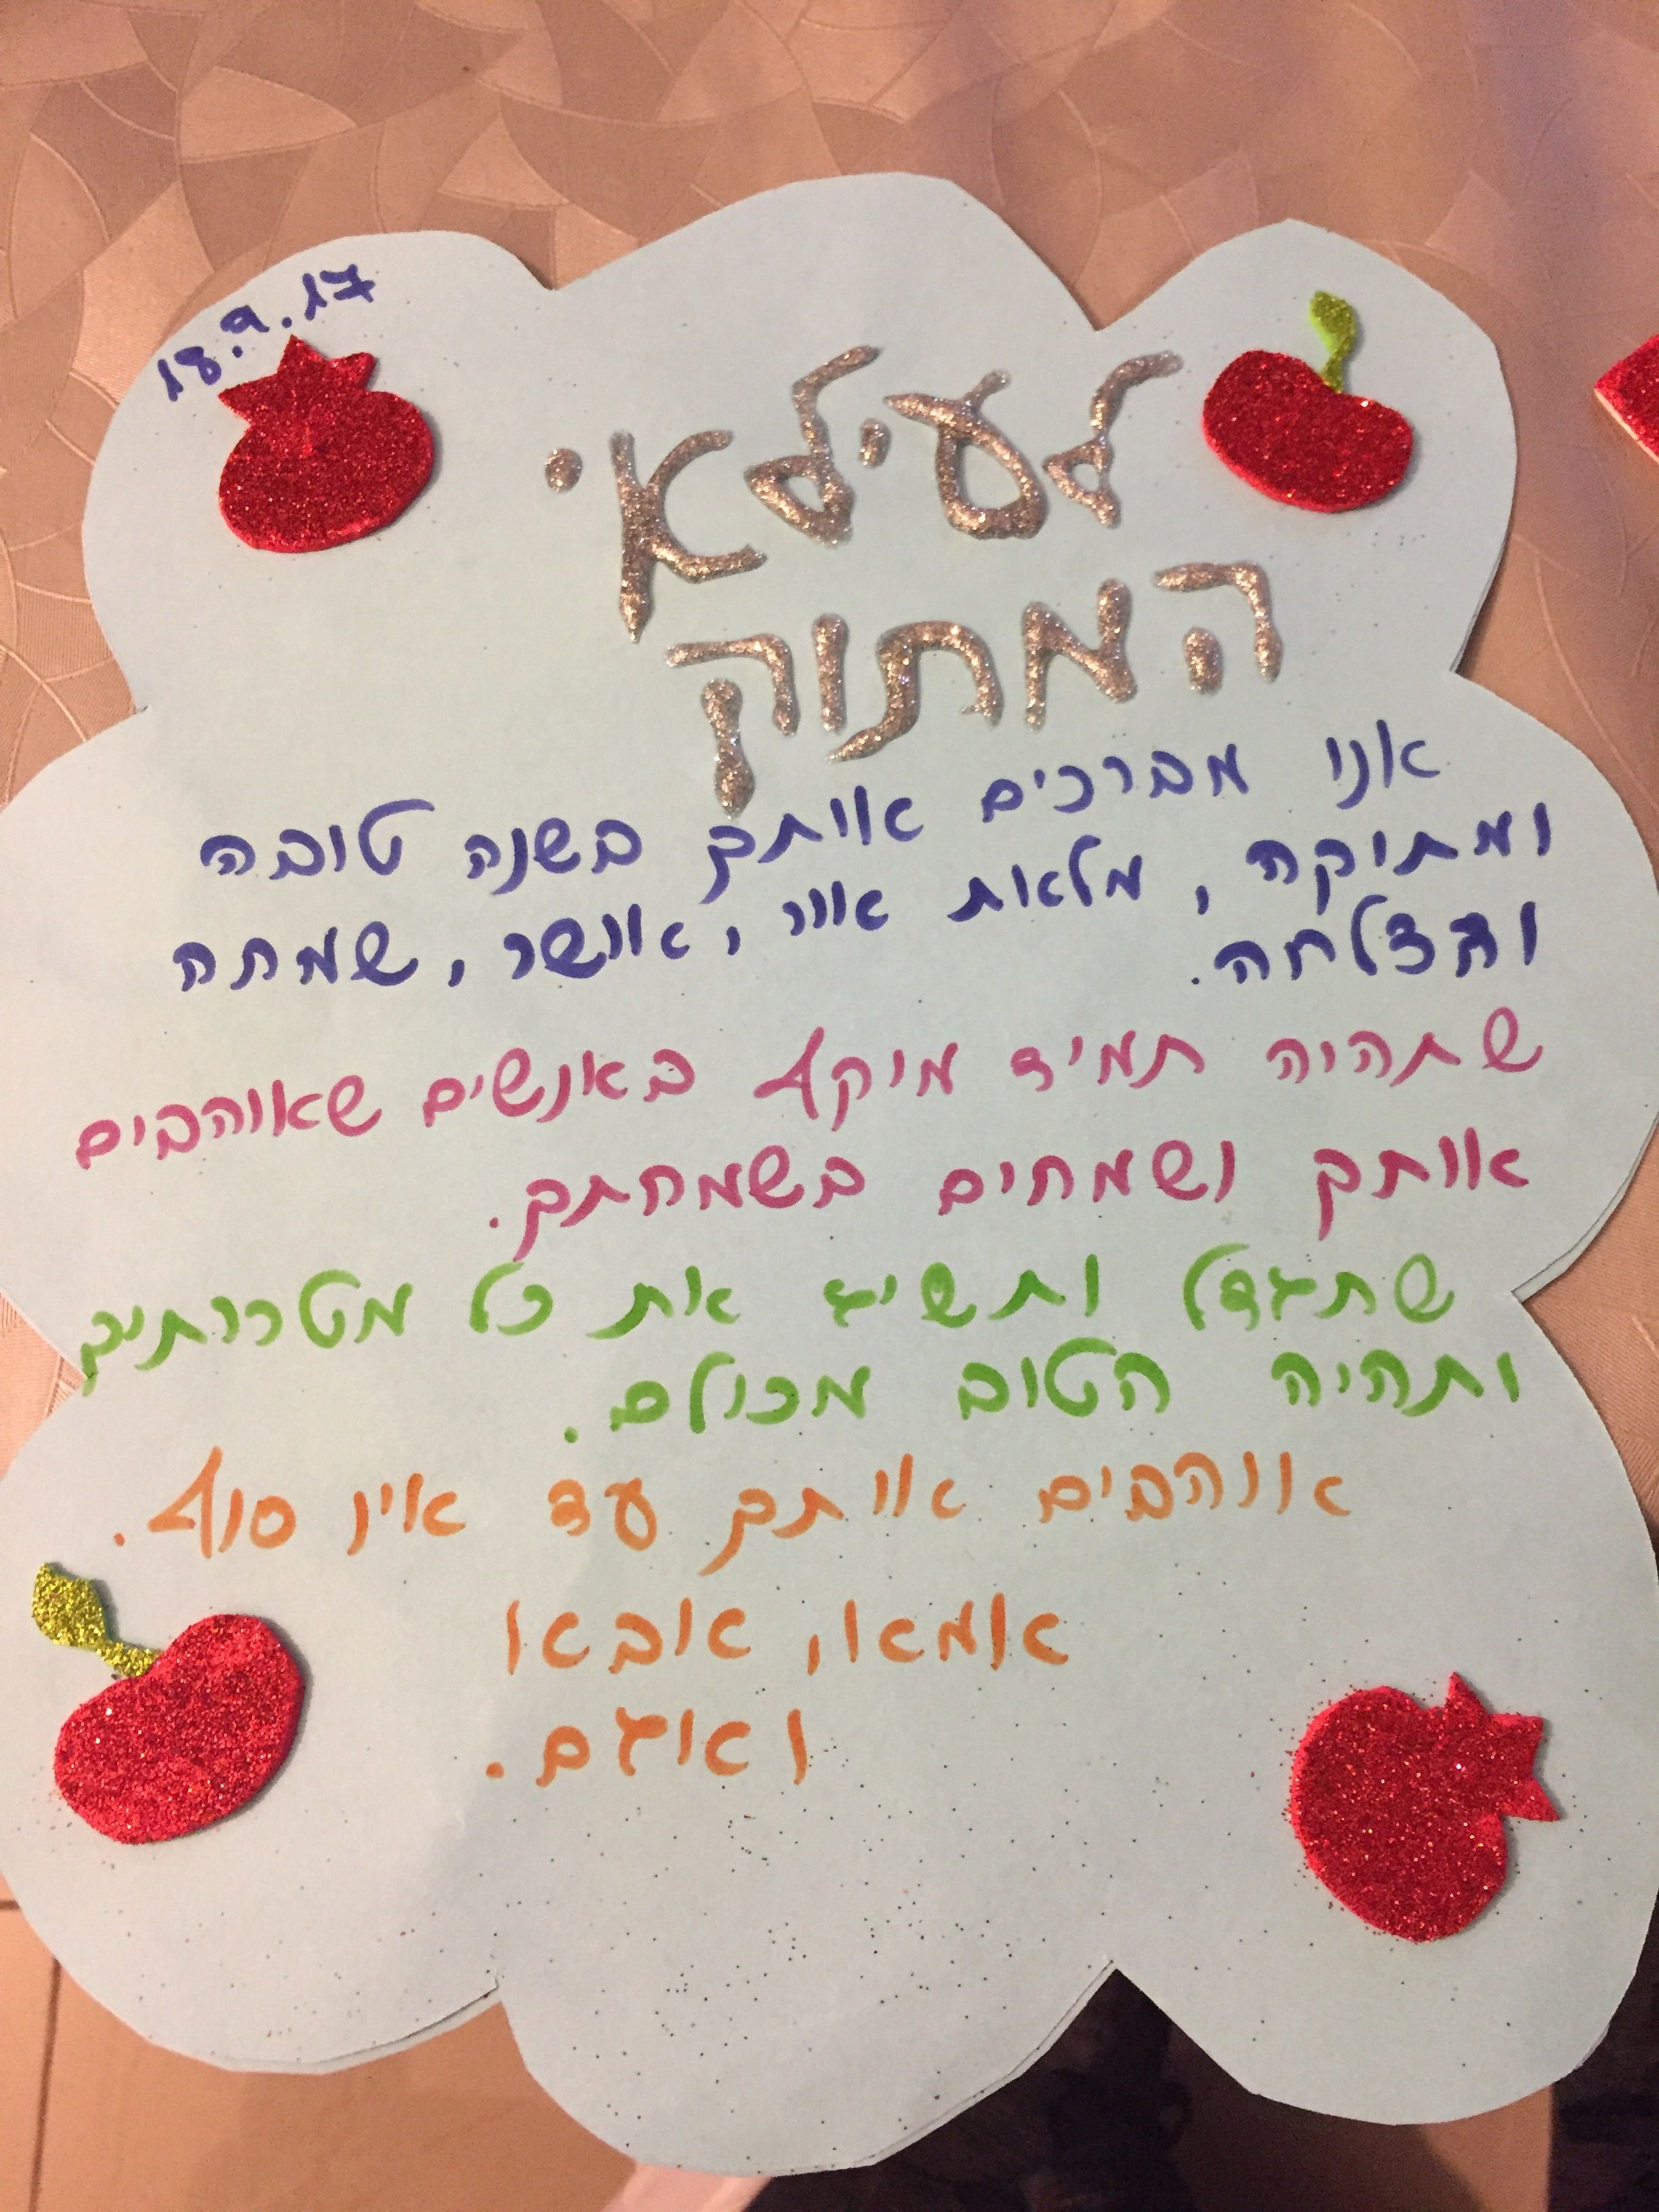 18.9.17
לעילאי
המתוק
אנו מברכים אותך בשנה טובה
ומתוקה, מלאת אור, אושר, שמחה
והצלחה.
שתהיה תמיד מוקף באנשים שאוהבים
אותך ושמחים בשמחתך.
שתגדל ותשיג את כל מטרותיך
ותהיה הטוב מכולם.
אוהבים אותך עד אין סוף.
אמא, אבא